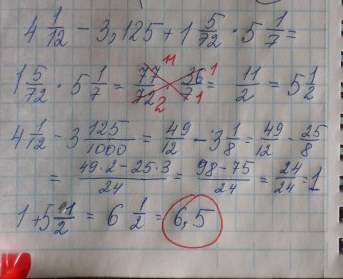 4 1/12 - 3,125 + 1 5/72 · 5 1/7 =
1 5/72 · 5 1/7 = 77/72 · 36/7 = 11/2 = 5 1/2
11 1
2 1
4 1/12 - 3 125/1000 = 49/12 - 3 1/8 = 49/12 - 25/8
= 49·2-25·3/24 = 98-75/24 = 24/24 = 1
1 + 5 1/2 = 6 1/2 = 6,5